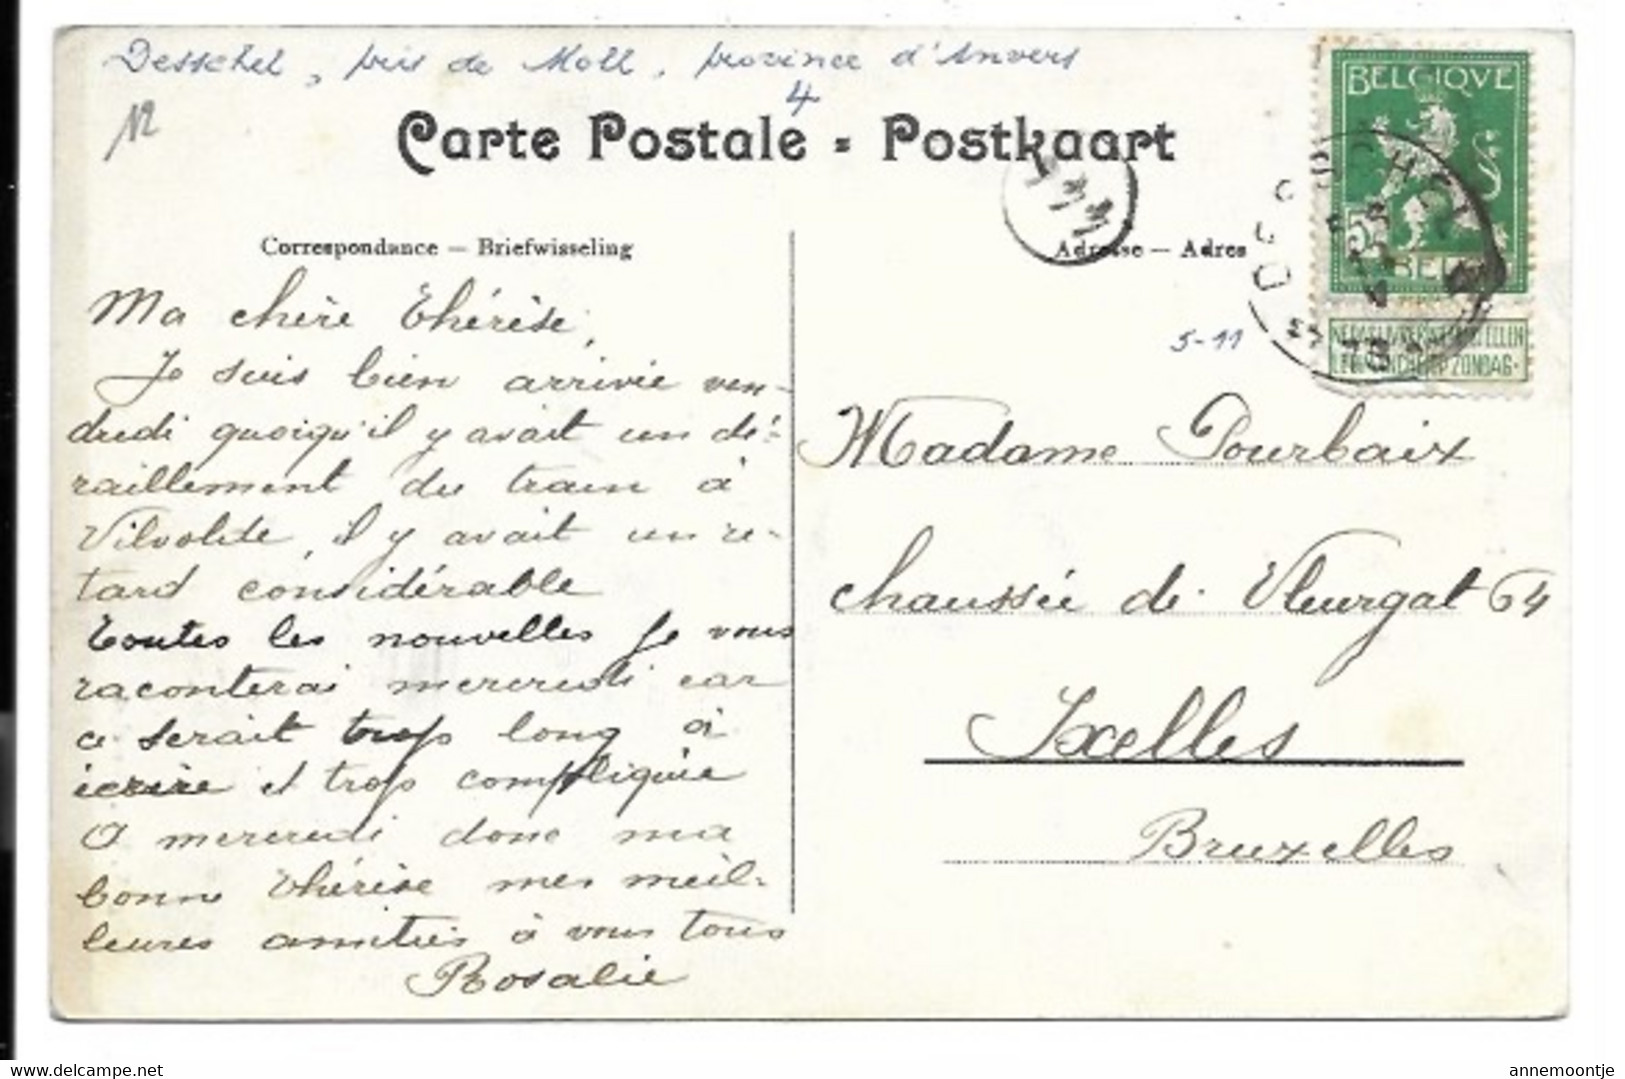 Desschel, près de Moll, province d'Anvers
4
12
Carte Postale - Postkaart
Correspondance — Briefwisseling
Adresse — Adres
BELGIQVE
5-11
NE PAS LIVRER LE DIMANCHE
Ma chère Thérèse,
Je suis bien arrivée ven-
dredi quoiqu'il y avait un dé-
raillement du train à
Vilvolde, il y avait un re-
tard considérable
Toutes les nouvelles je vous
raconterai mercredi car
ce serait trop long à
écrire et trop compliquée
A mercredi donc ma
bonne Thérèse mes meil-
leures amitiés à vous tous
Rosalie
Madame Pourbaix
chaussée de Vleurgat 64
Ixelles
Bruxelles
https://www.delcampe.net
annemoontje